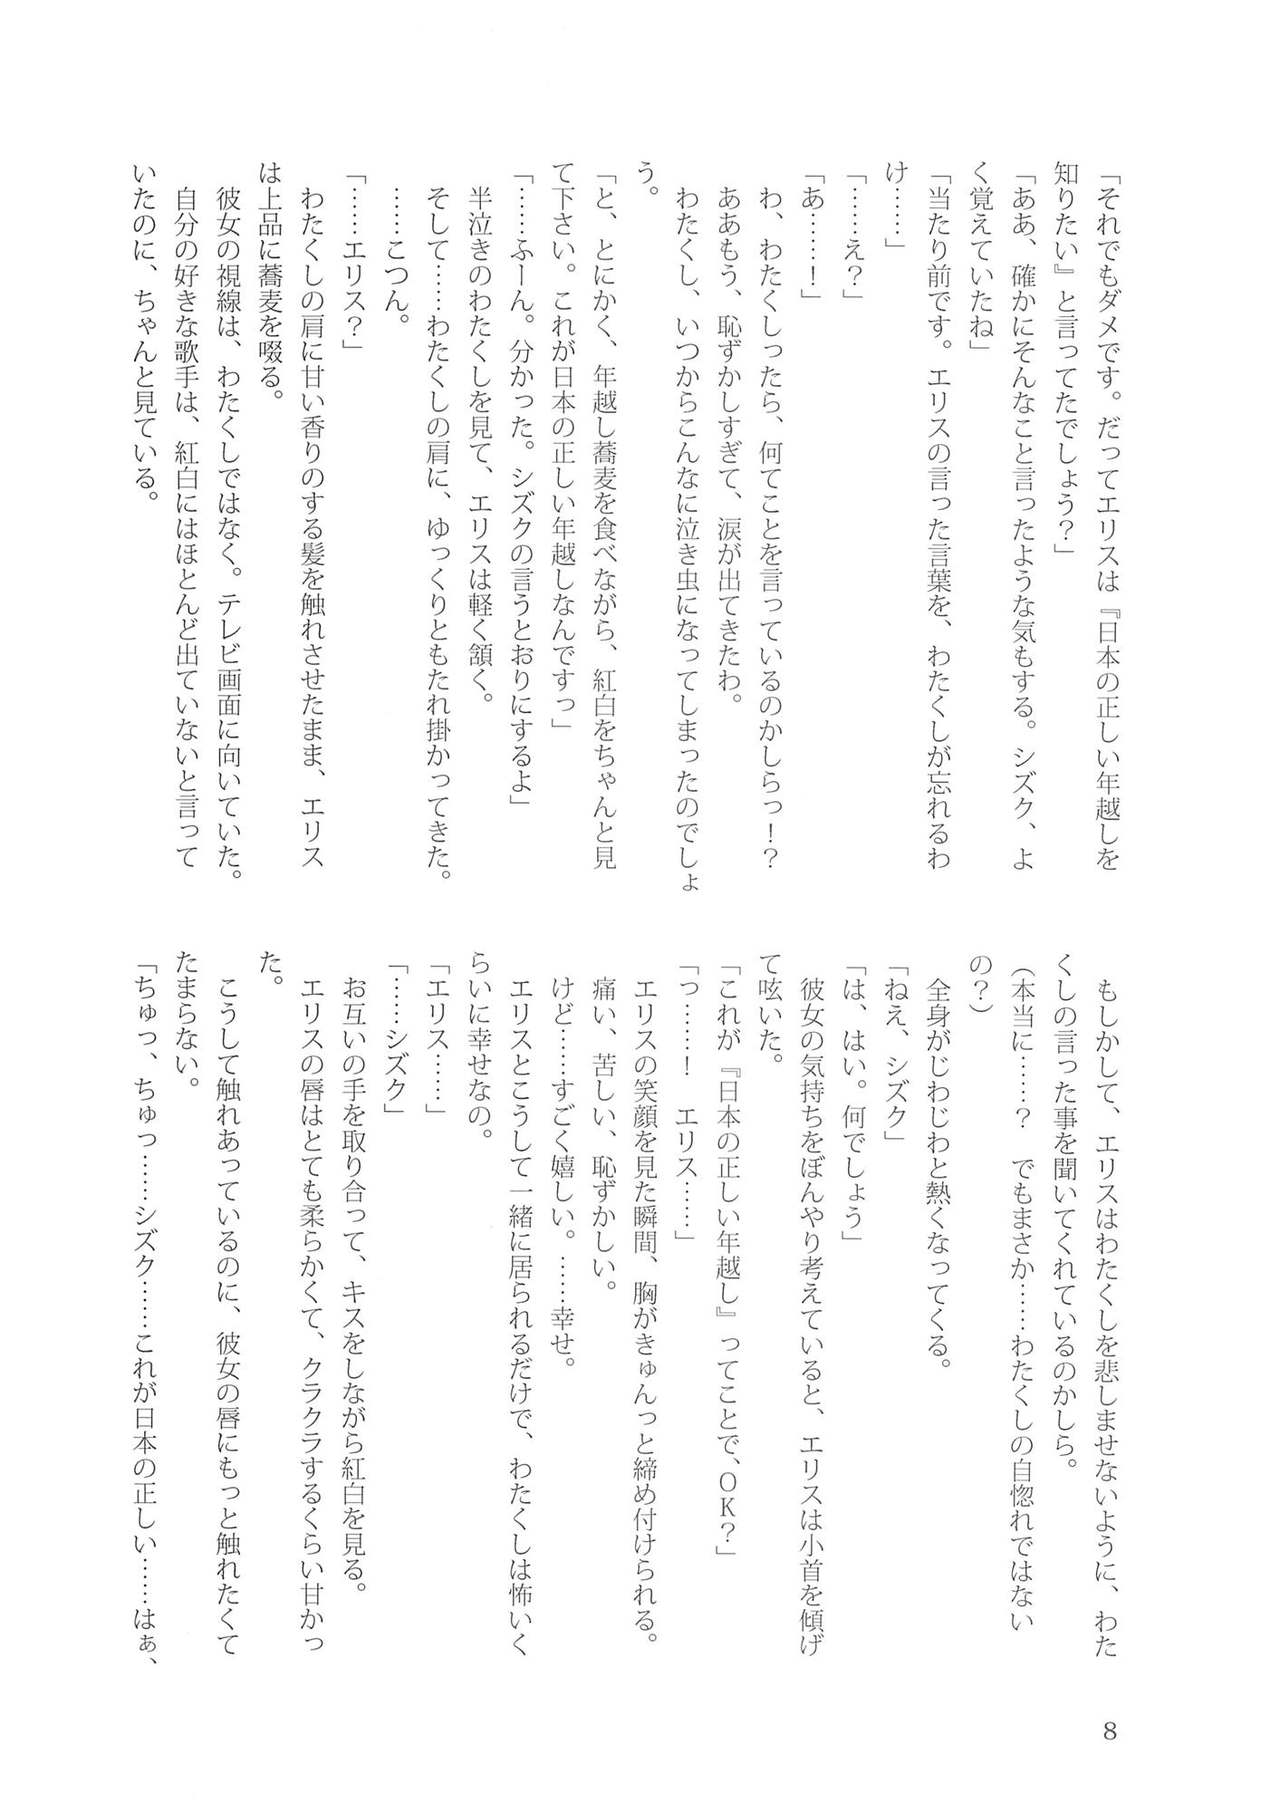 「それでもダメです。だってエリスは『日本の正しい年越しを
知りたい』と言ってたでしょう？」
「ああ、確かにそんなこと言ったような気もする。シズク、よ
く覚えていたね」
「当たり前です。エリスの言った言葉を、わたくしが忘れるわ
け……」
「……え？」
「あ……！」
　わ、わたくしったら、何てことを言っているのかしらっ！？
　ああもう、恥ずかしすぎて、涙が出てきたわ。
　わたくし、いつからこんなに泣き虫になってしまったのでしょ
う。
「と、とにかく、年越し蕎麦を食べながら、紅白をちゃんと見
て下さい。これが日本の正しい年越しなんですっ」
「……ふーん。分かった。シズクの言うとおりにするよ」
　半泣きのわたくしを見て、エリスは軽く頷く。
　そして……わたくしの肩に、ゆっくりともたれ掛かってきた。
　……こつん。
「……エリス？」
　わたくしの肩に甘い香りのする髪を触れさせたまま、エリス
は上品に蕎麦を啜る。
　彼女の視線は、わたくしではなく。テレビ画面に向いていた。
　自分の好きな歌手は、紅白にはほとんど出ていないと言って
いたのに、ちゃんと見ている。
　もしかして、エリスはわたくしを悲しませないように、わた
くしの言った事を聞いてくれているのかしら。
（本当に……？　でもまさか……わたくしの自惚れではない
の？）
　全身がじわじわと熱くなってくる。
「ねえ、シズク」
「は、はい。何でしょう」
　彼女の気持ちをぼんやり考えていると、エリスは小首を傾げ
て呟いた。
「これが『日本の正しい年越し』ってことで、OK？」
「っ……！　エリス……」
　エリスの笑顔を見た瞬間、胸がきゅんっと締め付けられる。
　痛い、苦しい、恥ずかしい。
　けど……すごく嬉しい。……幸せ。
　エリスとこうして一緒に居られるだけで、わたくしは怖いく
らいに幸せなの。
「エリス……」
「……シズク」
　お互いの手を取り合って、キスをしながら紅白を見る。
　エリスの唇はとても柔らかくて、クラクラするくらい甘かっ
た。
　こうして触れあっているのに、彼女の唇にもっと触れたくて
たまらない。
「ちゅっ、ちゅっ……シズク……これが日本の正しい……はぁ、
8